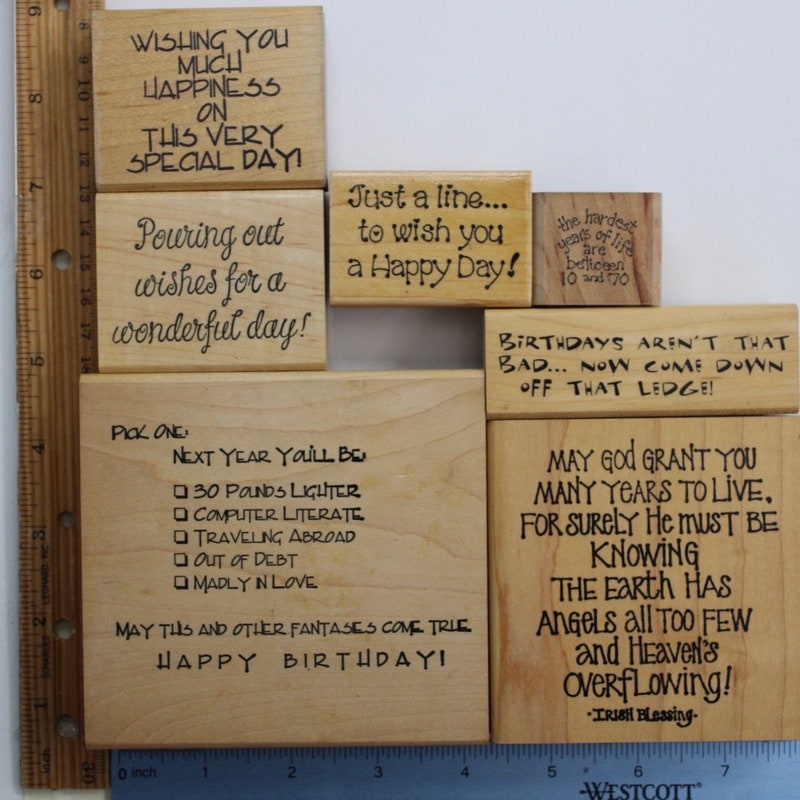 WISHING YOU
MUCH
HAPPINESS
ON
THIS VERY
SPECIAL DAY!
Pouring out
wishes for a
wonderful day!
Just a line...
to wish you
a Happy Day!
the hardest
years of life
are
between
10 and 70
BIRTHDAYS AREN'T THAT
BAD... NOW COME DOWN
OFF THAT LEDGE!
PICK ONE:
NEXT YEAR YOU'LL BE:
30 POUNDS LIGHTER
COMPUTER LITERATE
TRAVELING ABROAD
OUT OF DEBT
MADLY IN LOVE
MAY THIS AND OTHER FANTASIES COME TRUE
HAPPY BIRTHDAY!
MAY GOD GRANT YOU
MANY YEARS TO LIVE,
FOR SURELY HE MUST BE
KNOWING
THE EARTH HAS
ANGELS all TOO FEW
and HEAVEN'S
OVERFLOWING!
-IRISH Blessing-
9
8
7
6
5
4
3
2
1
inch
8
9
10
11
12
13
14
15
16
17
18
30
0 inch 1 2 3 4 5 6 7
WESTCOTT®